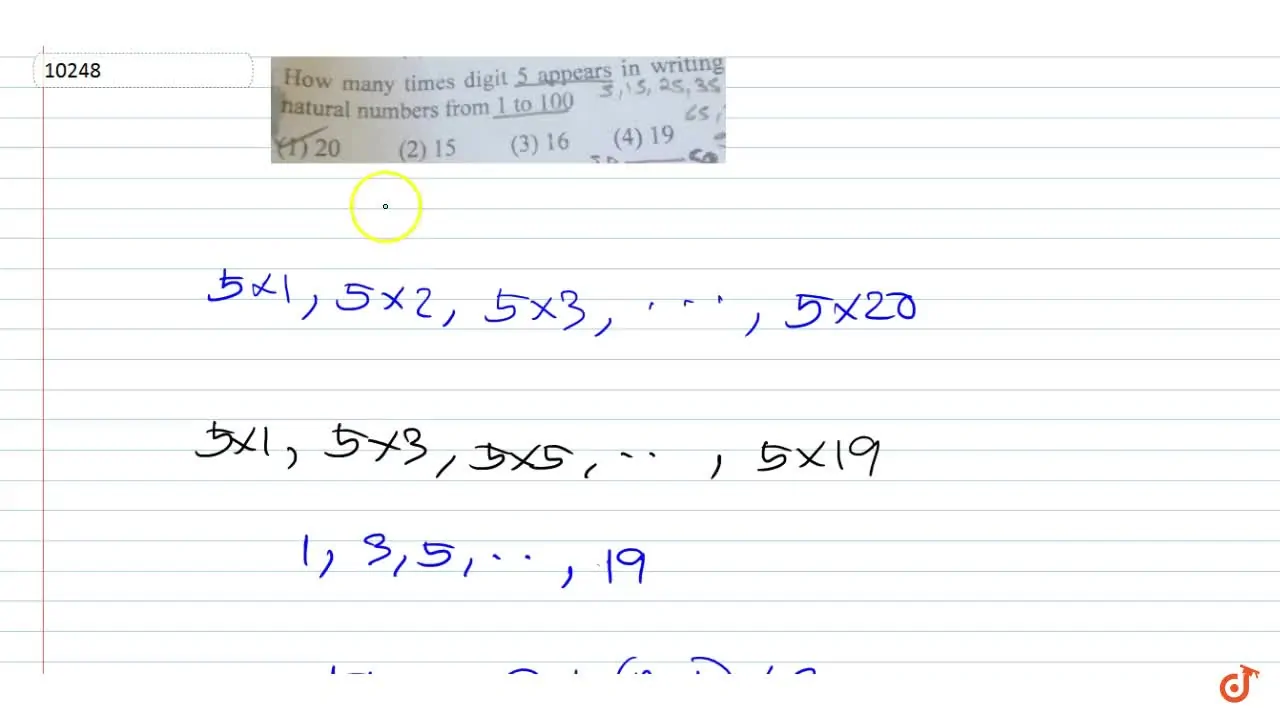 10248
How many times digit 5 appears in writing
natural numbers from 1 to 100
5, 15, 25, 35
65,
(1) 20 (2) 15 (3) 16 (4) 19
50
5×1, 5×2, 5×3, ..., 5×20
5×1, 5×3, 5×5, .., 5×19
1, 3, 5, .., 19